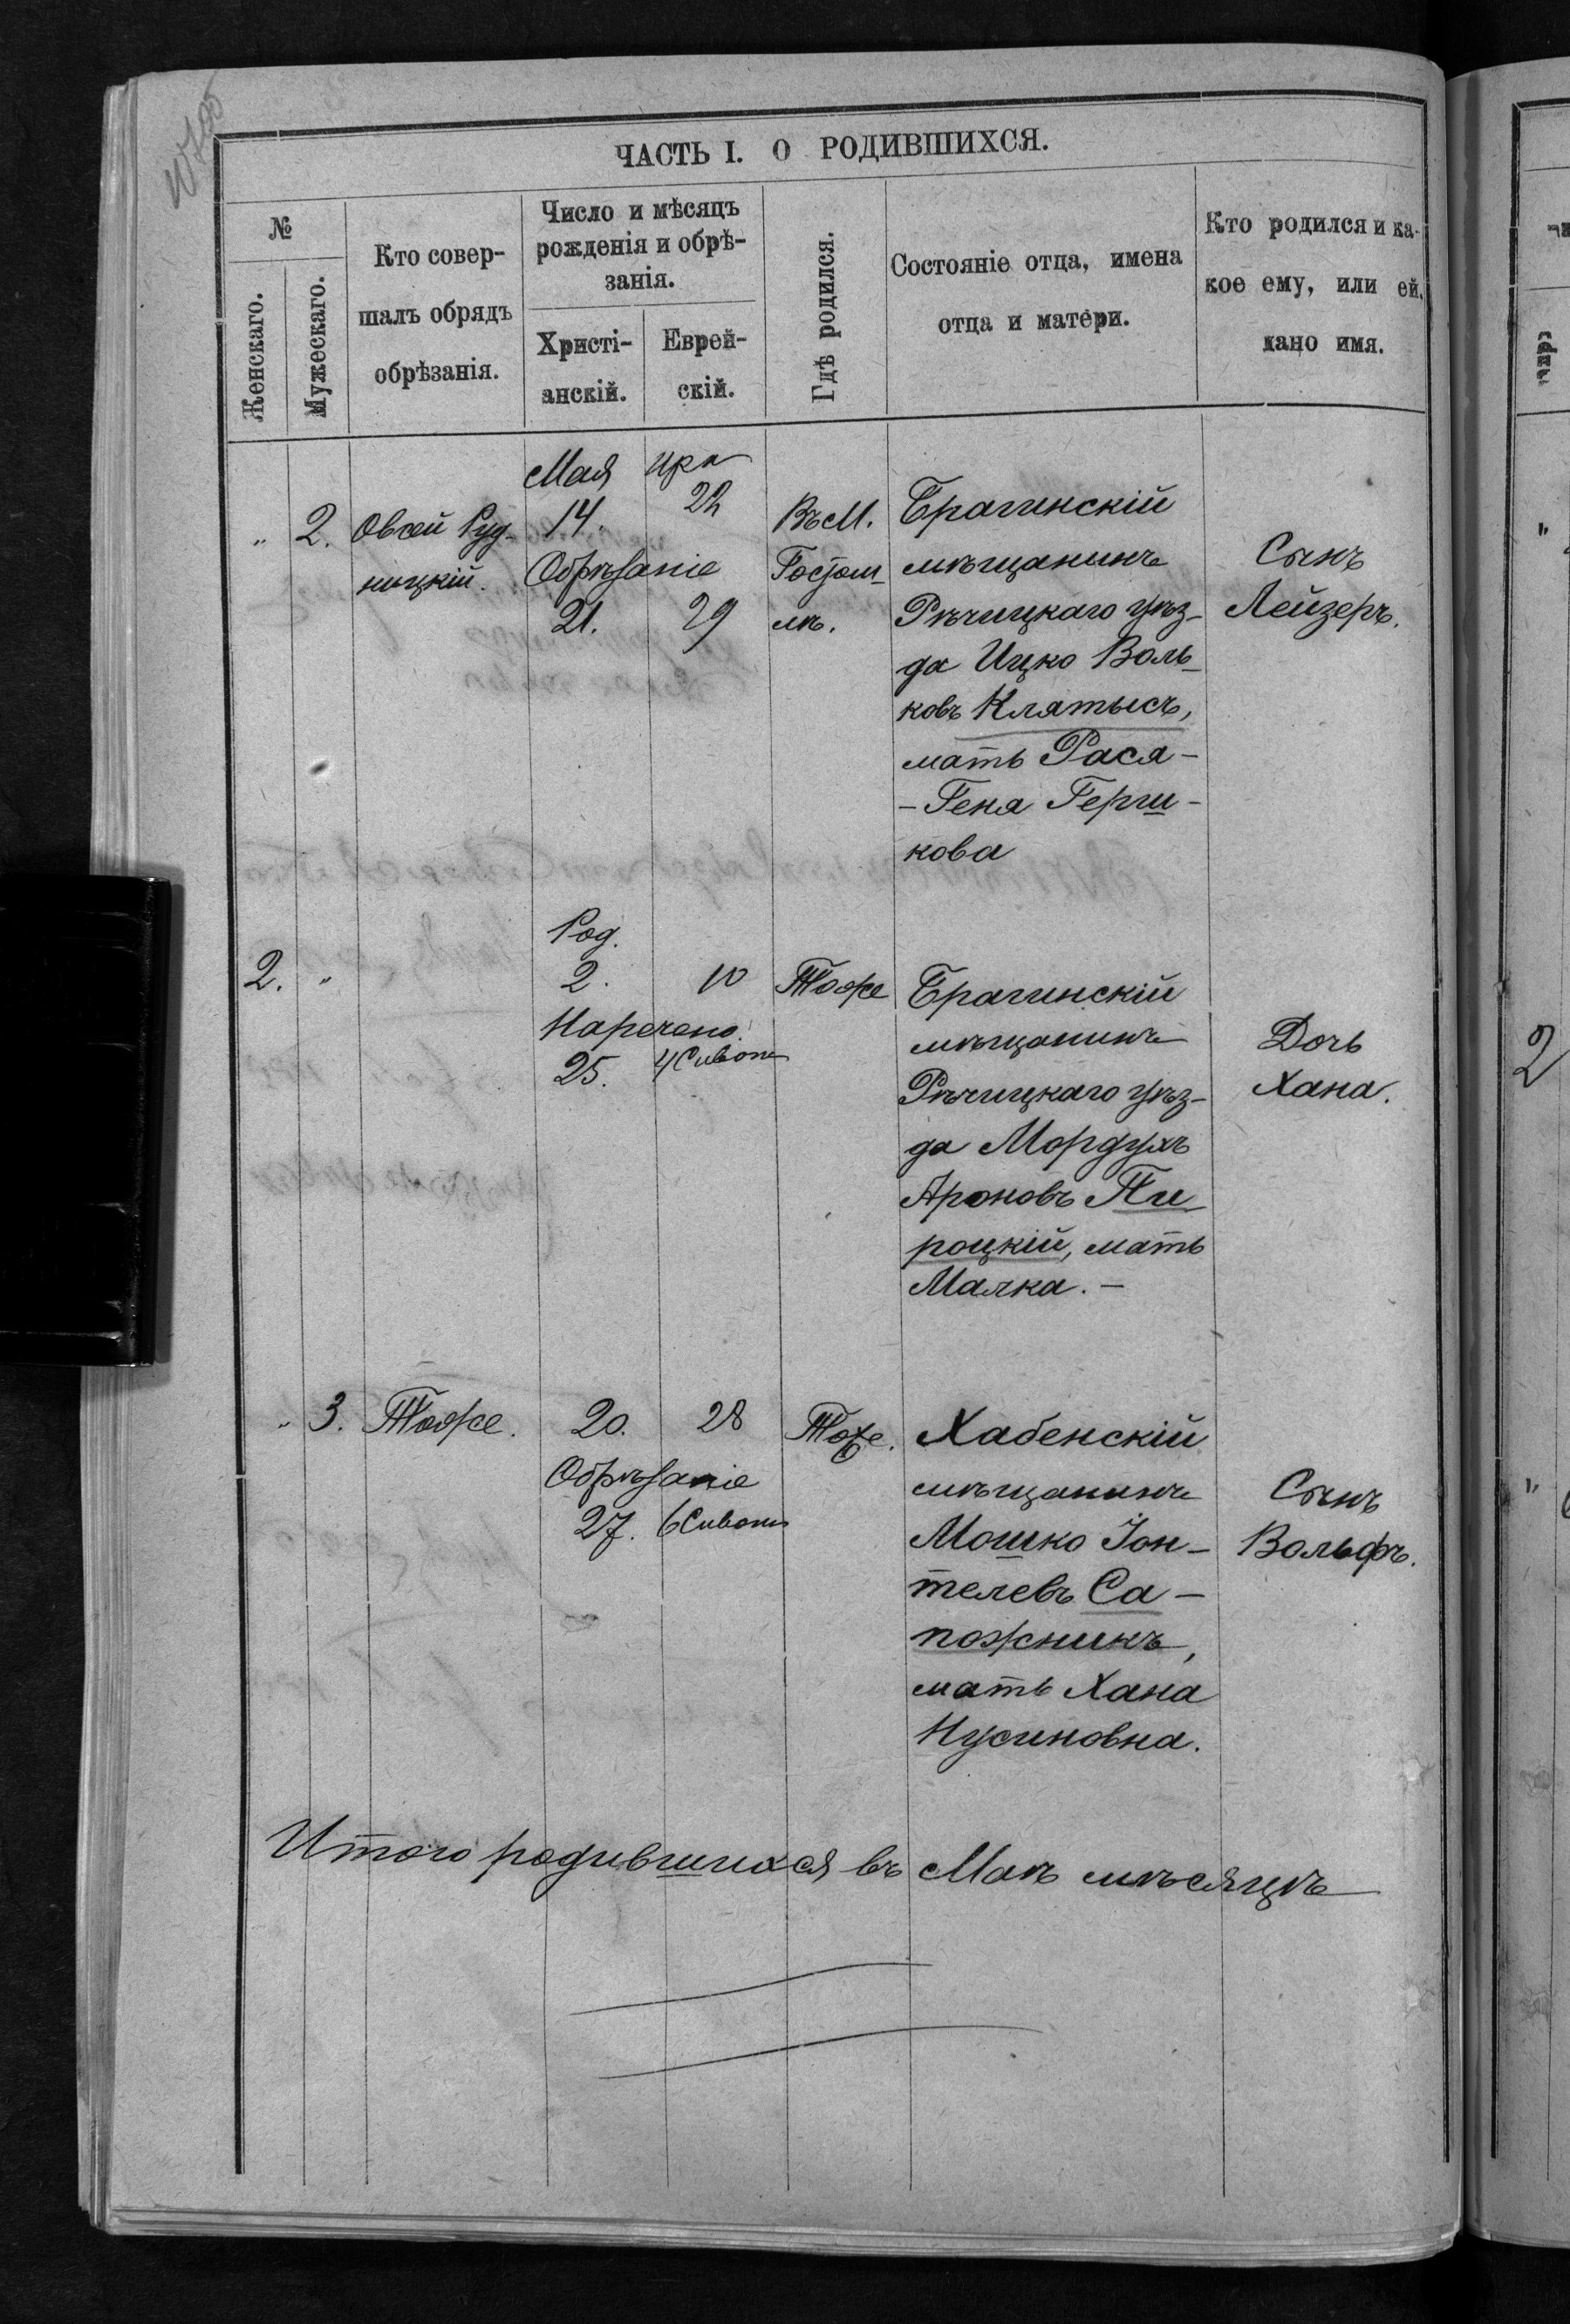 ЧАСТЬ I. О РОДИВШИХСЯ.
№
Женскаго.
Мужескаго.
Кто совер-
шалъ обрядъ
обрѣзанія.
Число и мѣсяцъ
рожденія и обрѣ-
занія.
Христі-
анскій.
Еврей-
скій.
Гдѣ родился.
Состояніе отца, имена
отца и матери.
Кто родился и ка-
кое ему, или ей,
дано имя.
" 2.
Овсей Руд-
ницкій.
Мая Ира
14. 22
Обрѣзаніе
21. 29
Въ М.
Гостом
лѣ.
Брагинскій
мѣщанинъ
Рѣчицкаго уѣз-
да Ицко Воль-
ковъ Клятысъ,
мать Рася-
-Геня Герш-
кова
Сынъ
Лейзеръ.
2. "
Род.
2. 10
Наречено
25. 4 Сивонъ
Тоже
Брагинскій
мѣщанинъ
Рѣчицкаго уѣз-
да Мордухъ
Ароновъ Пи-
роцкій, мать
Малка. -
Дочь
Хана.
" 3. Тоже.
20. 28
Обрѣзаніе
27. 6 Сивонъ
Тоже.
Хабенскій
мѣщанинъ
Мошко Іон-
телевъ Са-
пожникъ,
мать Хана
Нусиновна.
Сынъ
Вольфъ.
Итого родившихся въ Маѣ мѣсяцѣ
2